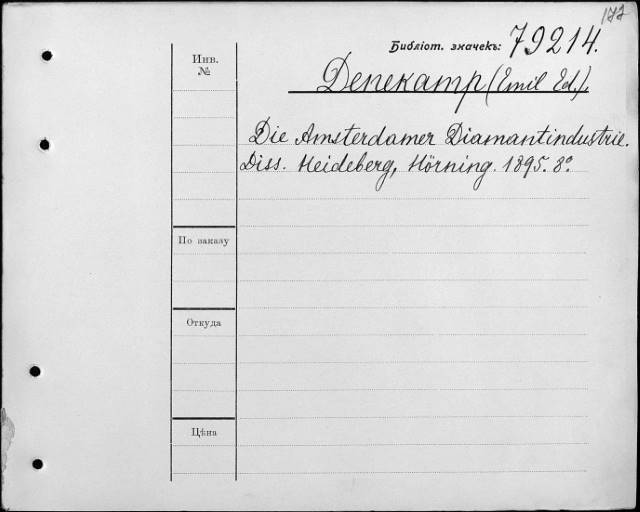 177
Библіот. значекъ: 79214.
Инв.
№
Denekamp (Emil Ed.),
Die Amsterdamer Diamantindustrie.
Diss. Heideberg, Hörning. 1895. 8°.
По заказу
Откуда
Цѣна